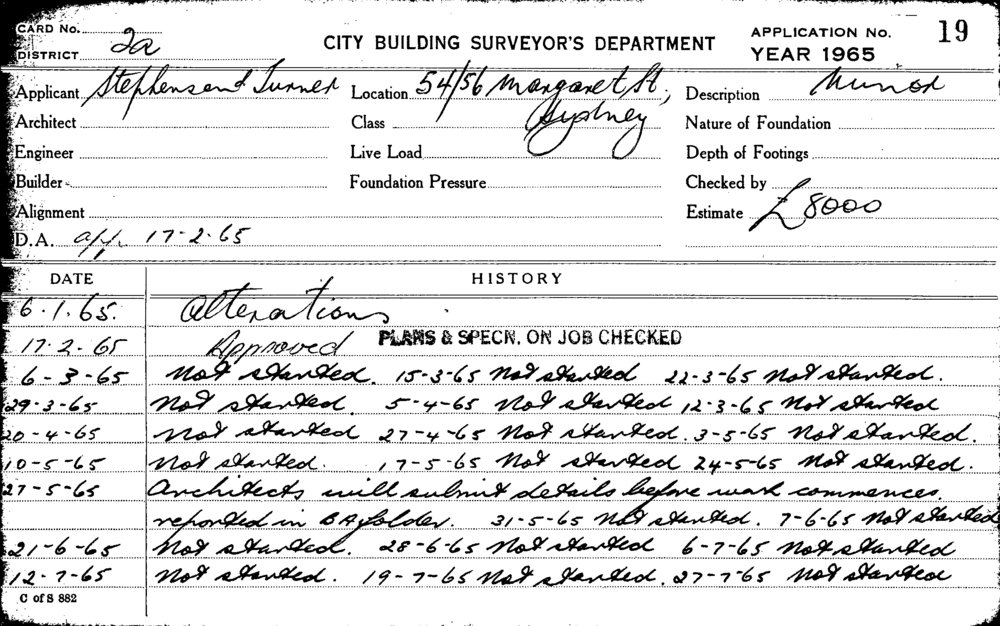 CARD No. 2a CITY BUILDING SURVEYOR'S DEPARTMENT APPLICATION No. 19
DISTRICT YEAR 1965
Applicant Stephenson & Turner Location 54/56 Margaret St, Description Minor
Architect Class Sydney Nature of Foundation
Engineer Live Load Depth of Footings
Builder Foundation Pressure Checked by
Alignment Estimate £8000
D.A. app. 17-2-65
DATE HISTORY
6.1.65. Alterations
17.2.65 Approved PLANS & SPECN. ON JOB CHECKED
6-3-65 Not started. 15-3-65 Not started 22-3-65 Not started.
29-3-65 Not started. 5-4-65 Not started 12-3-65 Not started
20-4-65 Not started 27-4-65 Not started. 3-5-65 Not started.
10-5-65 Not started. 17-5-65 Not started 24-5-65 Not started.
27-5-65 Architects will submit details before work commences.
reported in BA folder. 31-5-65 Not started. 7-6-65 Not started
21-6-65 Not started. 28-6-65 Not started 6-7-65 Not started
12-7-65 Not started. 19-7-65 Not started. 27-7-65 Not started
C of S 882